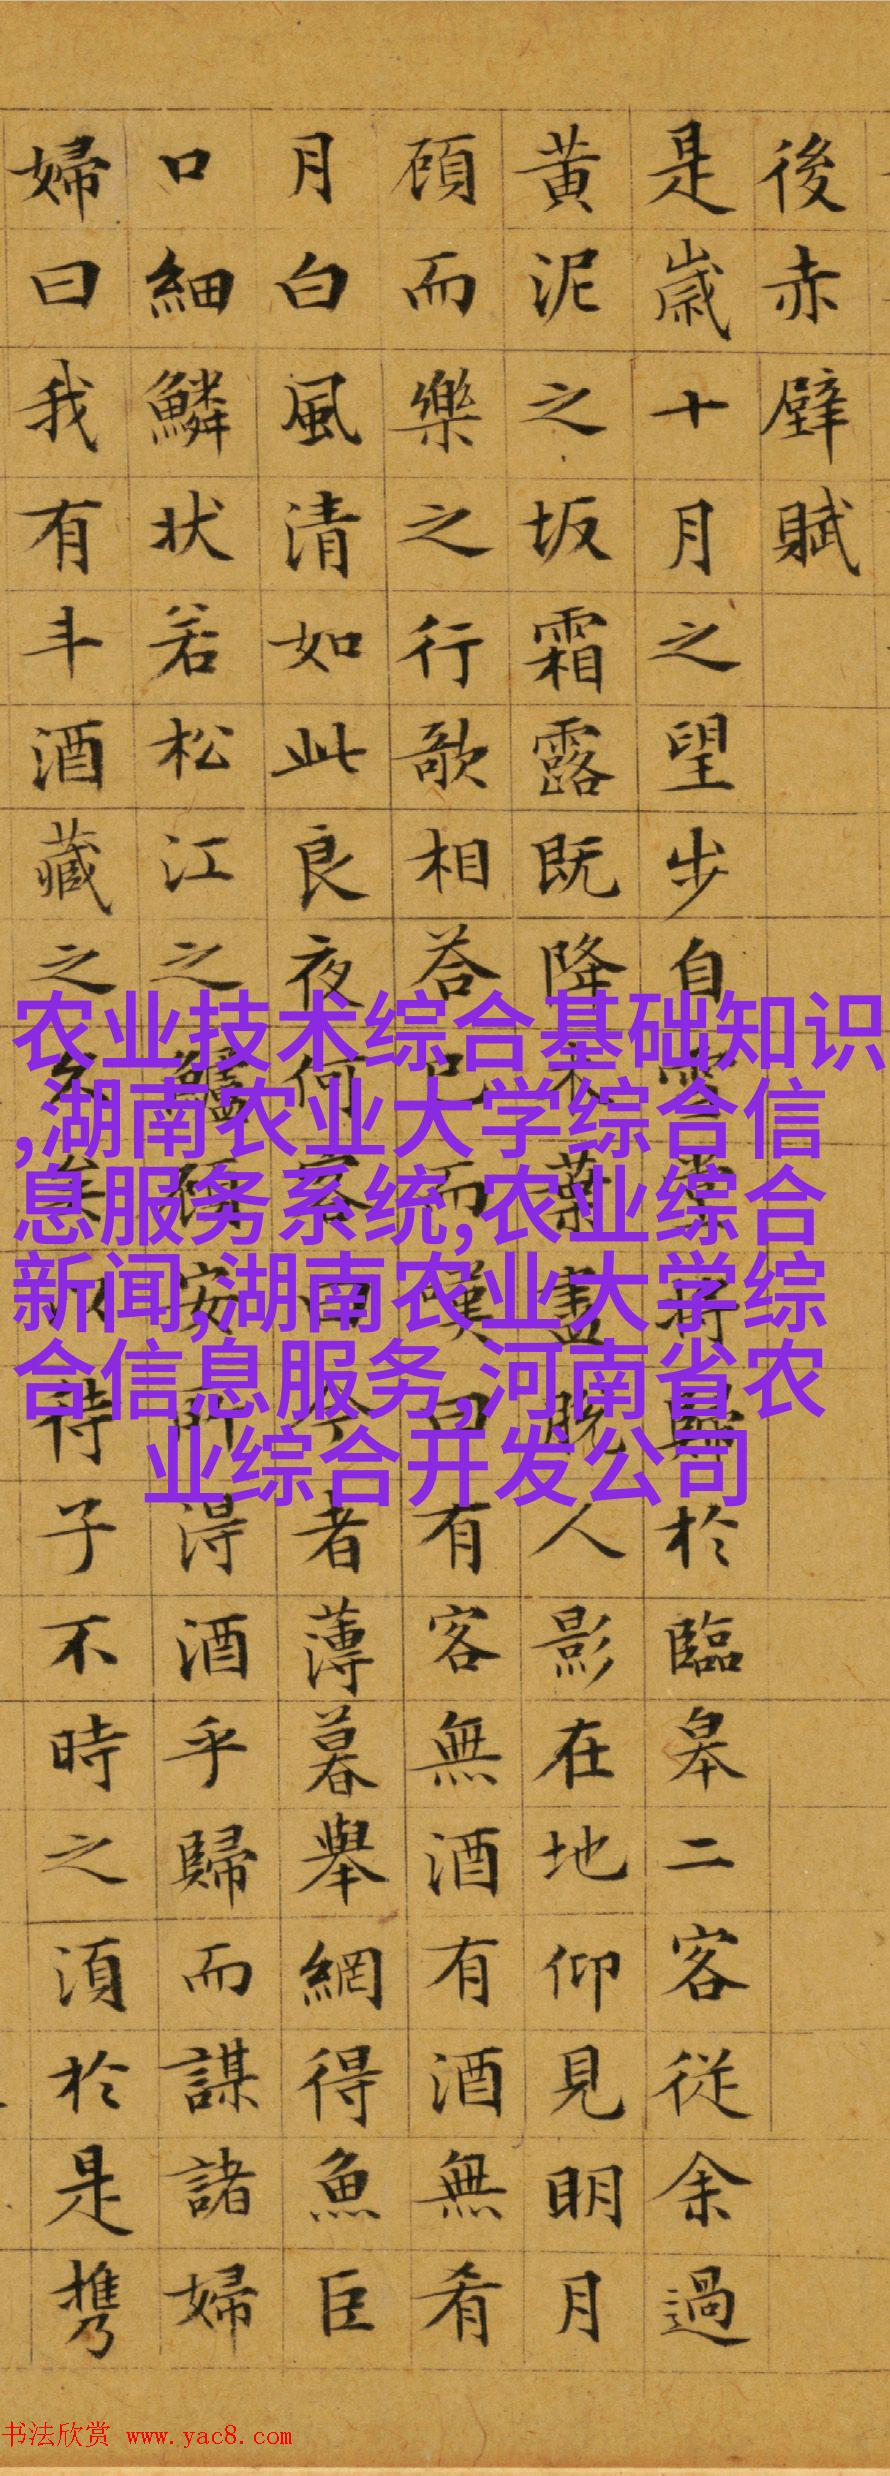 後赤壁賦
是歲十月之望步自雪堂將歸於臨皋二客從余過
黄泥之坂霜露既降木葉盡脫人影在地仰見明月
頋而樂之行歌相荅已而嘆曰有客無酒有酒無肴
月白風清如此良夜何客曰今者薄暮舉網得魚臣
口細鱗状若松江之鱸頋安所得酒乎歸而謀諸婦
婦曰我有斗酒藏之久矣以待子不時之須於是携
农业技术综合基础知识
,湖南农业大学综合信
息服务系统,农业综合
新闻,湖南农业大学综
合信息服务,河南省农
业综合开发公司
书法欣赏 www.yac8.com